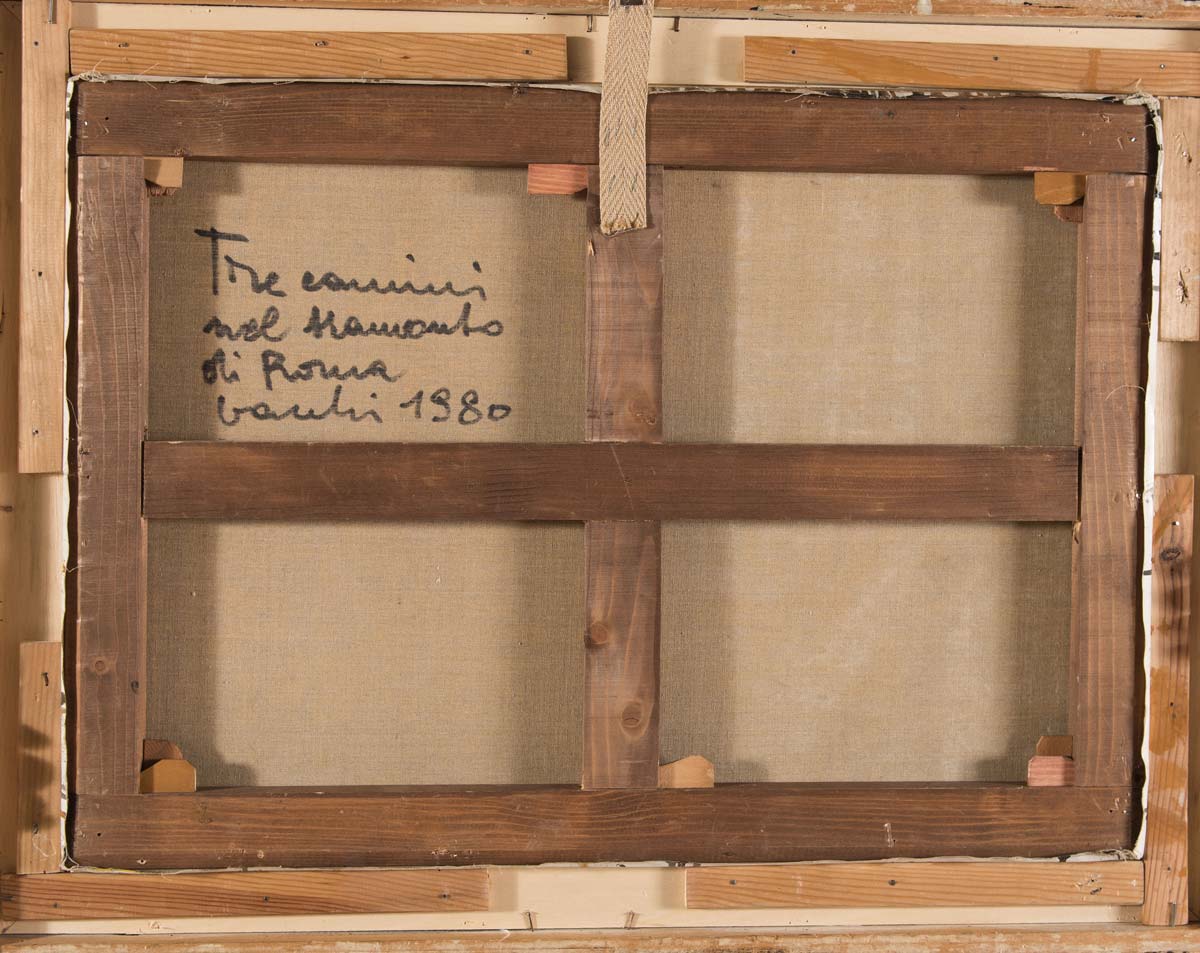 Tre camini
nel tramonto
di Roma
vacchi 1980